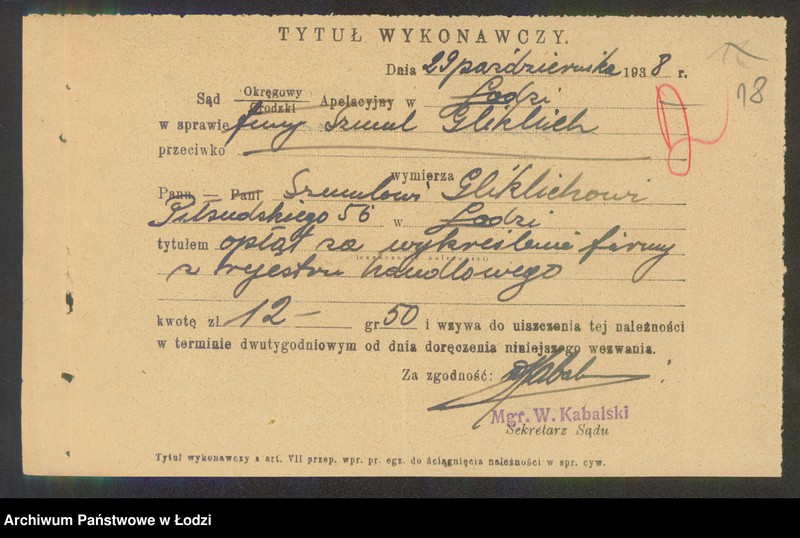 TYTUŁ WYKONAWCZY.
Dnia 29 października 1938 r.
18
Sąd Okręgowy Grodzki Apelacyjny w Łodzi
w sprawie firmy Szmul Gliklich
przeciwko
wymierza
Panu — Pani Szmulowi Gliklichowi
Piłsudskiego 56 w Łodzi
tytułem opłat za wykreślenie firmy
(oznaczenie należności)
z rejestru handlowego
kwotę zł 12 — gr 50 i wzywa do uiszczenia tej należności
w terminie dwutygodniowym od dnia doręczenia niniejszego wezwania.
Za zgodność:
Mgr. W. Kabalski
Sekretarz Sądu
Tytuł wykonawczy z art. VII przep. wpr. pr. egz. do ściągnięcia należności w spr. cyw.
Archiwum Państwowe w Łodzi